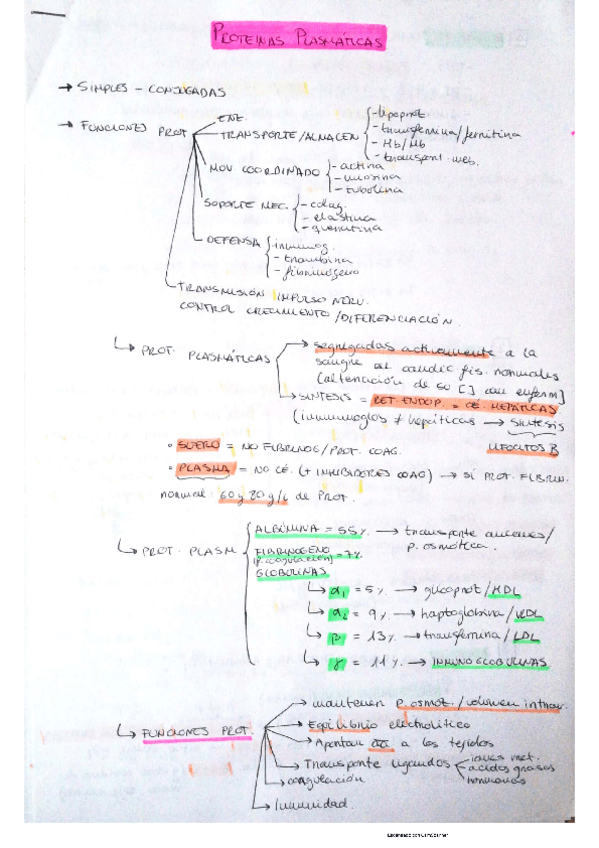 PROTEINAS PLASMÁTICAS
→ SIMPLES - CONJUGADAS
→ FUNCIONES PROT
ENZ.
TRANSPORTE/ALMACEN
- lipoprot
- transferrina/ferritina
- Hb/Mb
- transport. meb.
MOV COORDINADO
- actina
- miosina
- tubulina
SOPORTE MEC.
- colag.
- elastina
- queratina
DEFENSA
- inmunog.
- trombina
- fibrinógeno
TRANSMISIÓN IMPULSO NERV.
CONTROL CRECIMIENTO/DIFERENCIACIÓN.
↳ PROT. PLASMÁTICAS
→ segregadas activamente a la
sangre al condic fis. normales
(alteración de su [ ] con enferm)
→ SINTESIS = RET. ENDOP. = CÉ. HEPÁTICAS
(inmunoglos ≠ hepáticas → SINTESIS
LIFOCITOS B
• SUERO = NO FIBRINOG/PROT. COAG.
• PLASMA = NO CÉ. (+ INHIBIDORES COAG) → SÍ PROT. FIBRIN.
normal: 60 y 80 g/L de PROT.
↳ PROT. PLASM
ALBÚMINA = 55% → transporte aniones/
p. osmótica.
FIBRINOGENO = 7%
(p. coagulación)
GLOBULINAS
↳ α1 = 5% → glucoprot/HDL
↳ α2 = 9% → haptoglobina/VLDL
↳ β = 13% → transferrina/LDL
↳ γ = 11% → INMUNOGLOBULINAS
↳ FUNCIONES PROT.
→ mantener p. osmot./volumen intrav.
→ Equilibrio electrolítico
→ Aportan aa a los tejidos
→ Transporte ligandos
iones met.
ácidos grasos
hormonas
→ coagulación
→ Inmunidad.
Escaneado con CamScanner